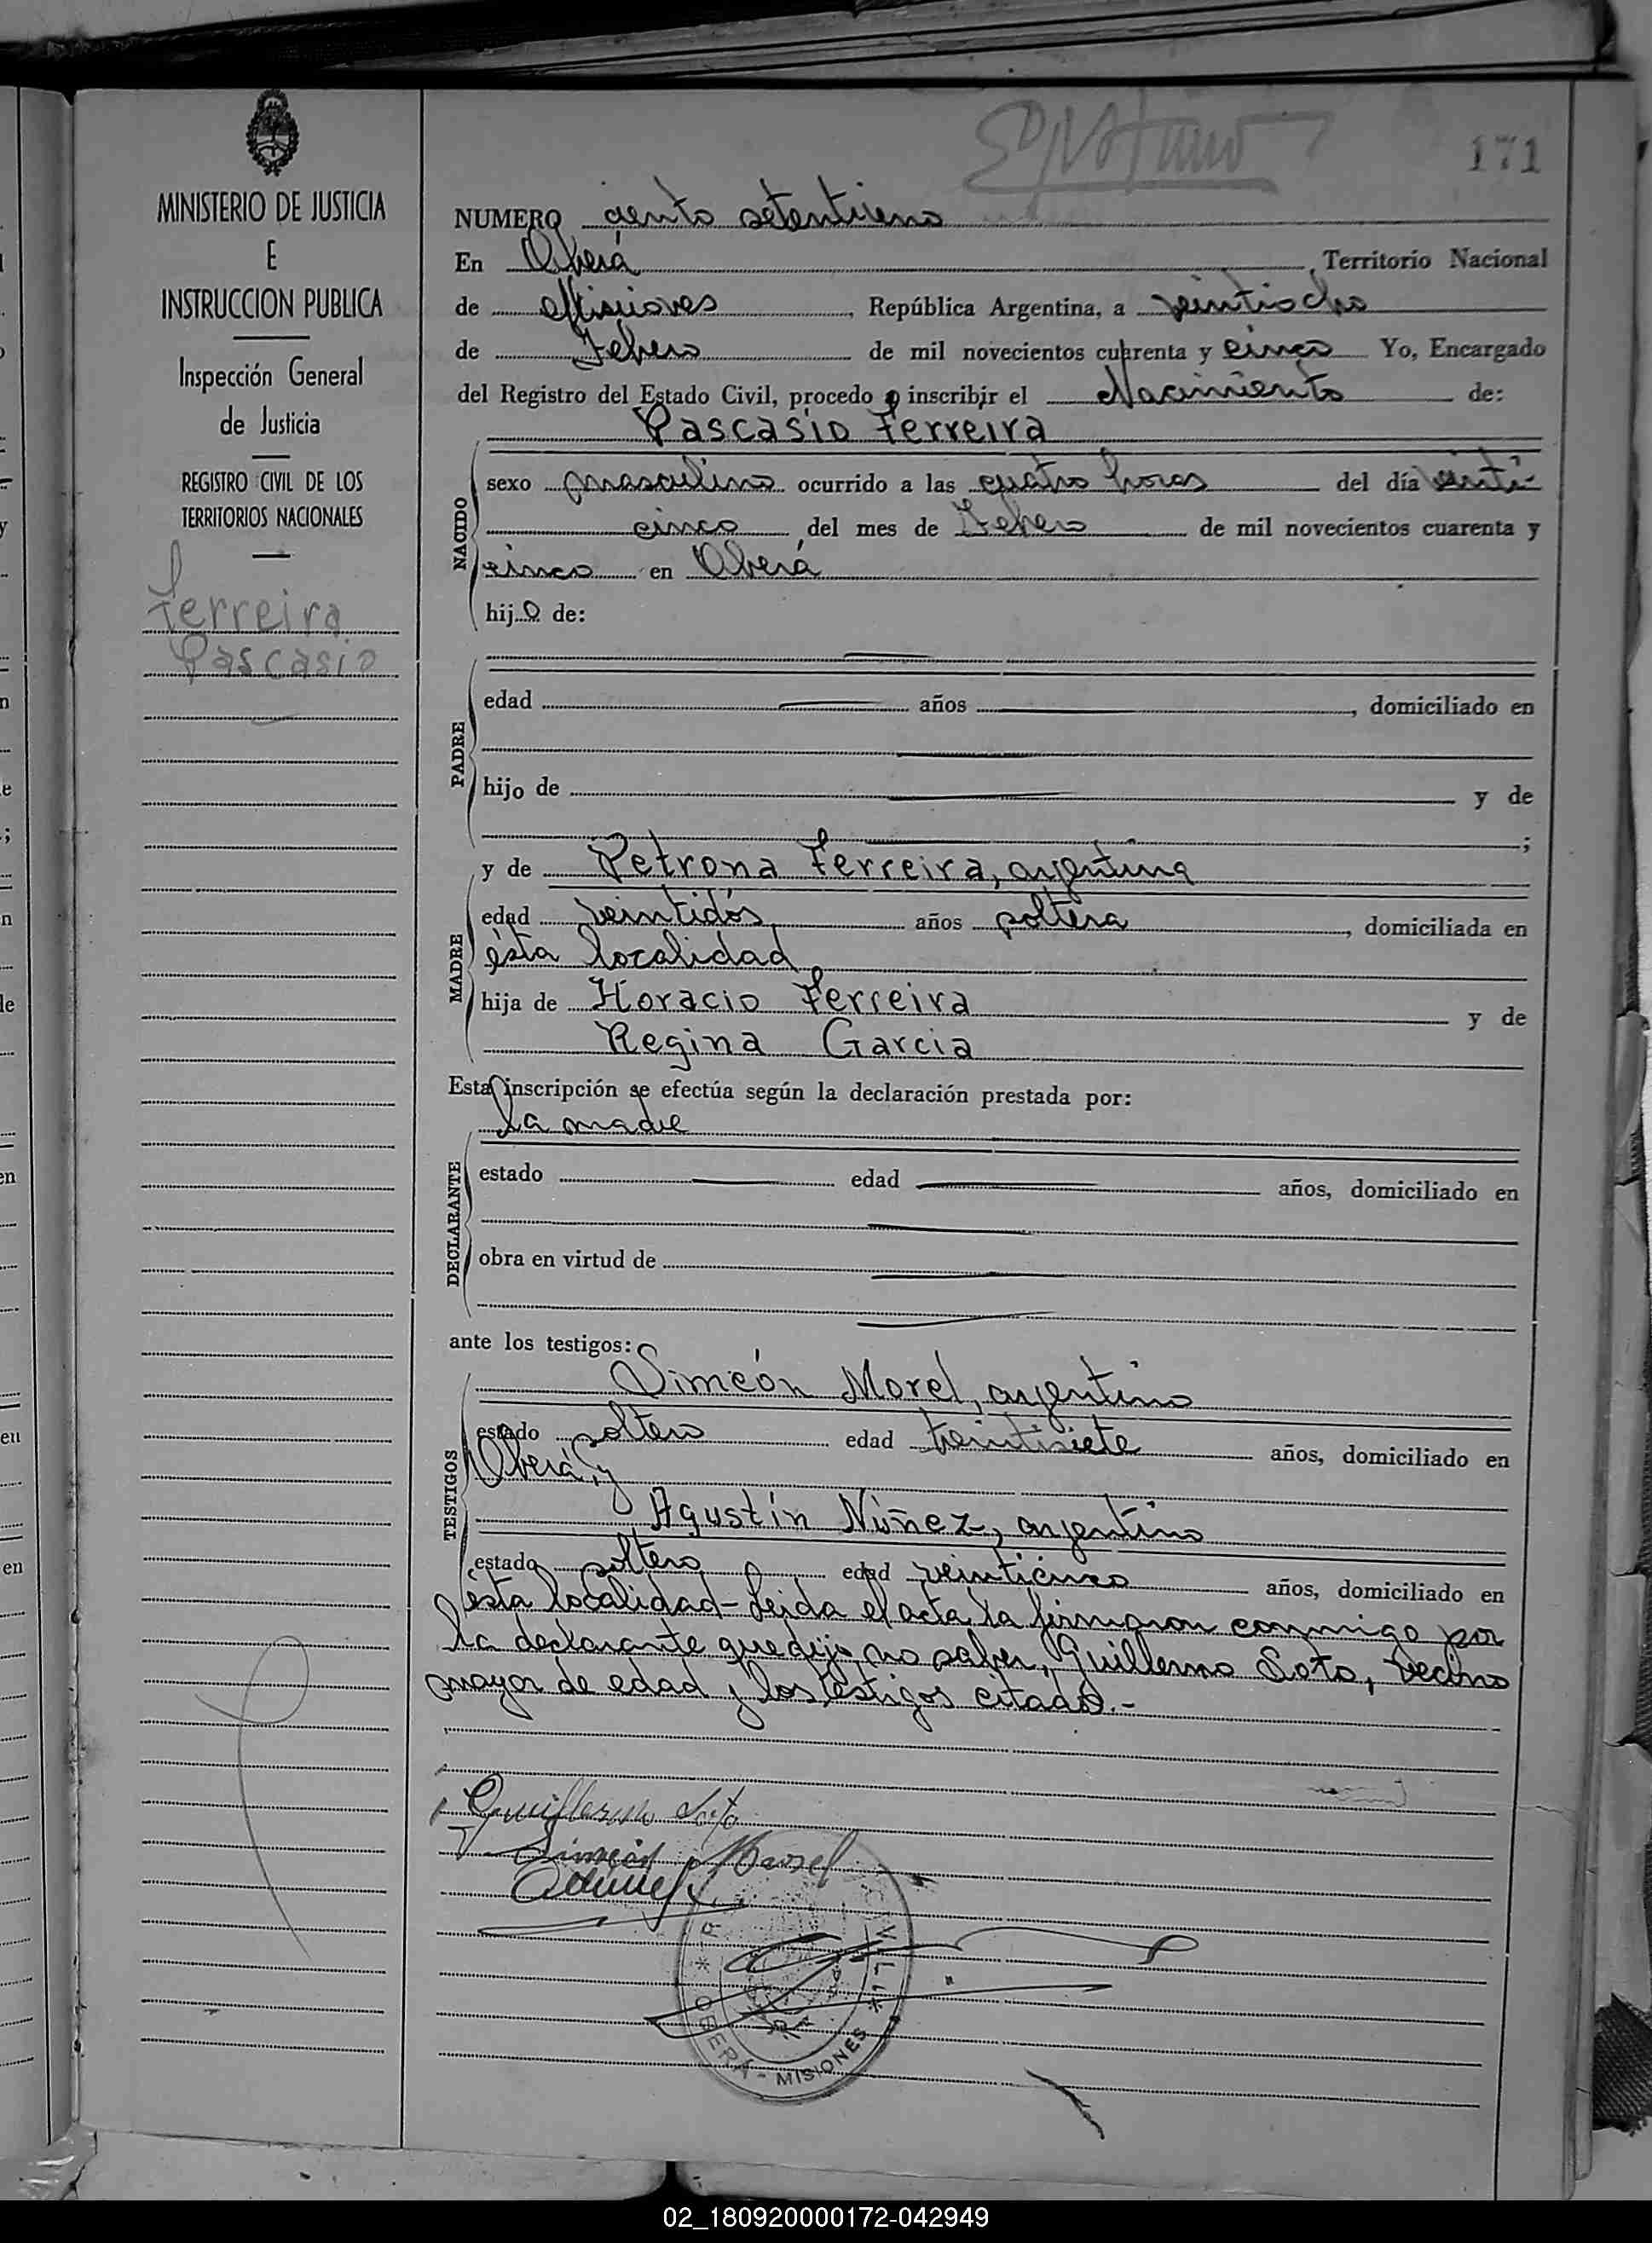 171
MINISTERIO DE JUSTICIA
E
INSTRUCCION PUBLICA
Inspección General
de Justicia
REGISTRO CIVIL DE LOS
TERRITORIOS NACIONALES
Ferreira
Pascasio
NUMERO ciento setentiuno
En Oberá, Territorio Nacional
de Misiones, República Argentina, a veintiocho
de Febrero de mil novecientos cuarenta y cinco Yo, Encargado
del Registro del Estado Civil, procedo a inscribir el Nacimiento de:
Pascasio Ferreira
NACIDO
sexo masculino ocurrido a las cuatro horas del día veinti-
cinco del mes de Febrero de mil novecientos cuarenta y
cinco en Oberá
hijo de:
PADRE
edad años , domiciliado en
hijo de y de
;
y de Petrona Ferreira, argentina
MADRE
edad veintidós años soltera, domiciliada en
ésta localidad
hija de Horacio Ferreira y de
Regina Garcia
Esta inscripción se efectúa según la declaración prestada por:
la madre
DECLARANTE
estado edad años, domiciliado en
obra en virtud de
ante los testigos:
Simeón Morel, argentino
TESTIGOS
estado soltero edad treintisiete años, domiciliado en
Oberá, y
Agustín Núñez, argentino
estado soltero edad veinticinco años, domiciliado en
ésta localidad - Leida el acta la firmaron conmigo por
la declarante que dijo no saber, Guillermo Soto, vecino
mayor de edad y los testigos citados.-
Guillermo Soto
Simeón Morel
OBERÁ - MISIONES
02_180920000172-042949